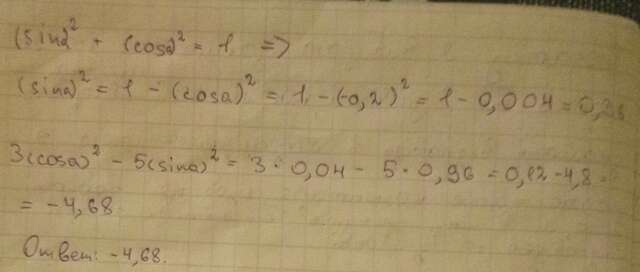 (sina)² + (cosa)² = 1 =>
(sina)² = 1 - (cosa)² = 1 - (-0,2)² = 1 - 0,004 = 0,96
3(cosa)² - 5(sina)² = 3 · 0,04 - 5 · 0,96 = 0,12 - 4,8 =
= -4,68.
Ответ: -4,68.